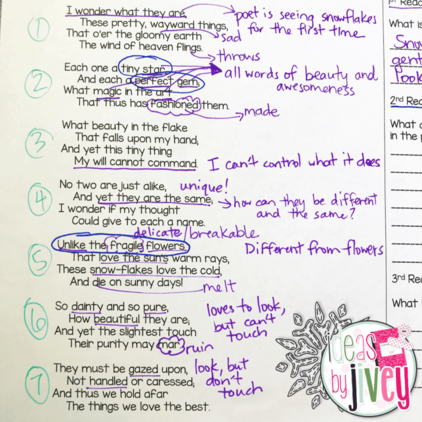 1st Read
What is
Snow
gent
Pook
2nd Rea
What a
in the p
3rd Rea
What l
1
I wonder what they are,
These pretty, wayward things,
That o'er the gloomy earth
The wind of heaven flings.
poet is seeing snowflakes
for the first time
sad
throws
2
Each one a tiny star,
And each a perfect gem,
What magic in the art
That thus has fashioned them.
all words of beauty and
awesomeness
made
3
What beauty in the flake
That falls upon my hand,
And yet this tiny thing
My will cannot command.
I can't control what it does
4
No two are just alike,
And yet they are the same,
I wonder if my thought
Could give to each a name.
unique!
how can they be different
and the same?
delicate/breakable
5
Unlike the fragile flowers
That love the sun's warm rays,
These snow-flakes love the cold,
And die on sunny days!
Different from flowers
melt
6
So dainty and so pure,
How beautiful they are,
And yet the slightest touch
Their purity may mar.
loves to look,
but can't
touch
ruin
7
They must be gazed upon,
Not handled or caressed,
And thus we hold afar
The things we love the best.
look, but
don't
touch
ideas
by jivey